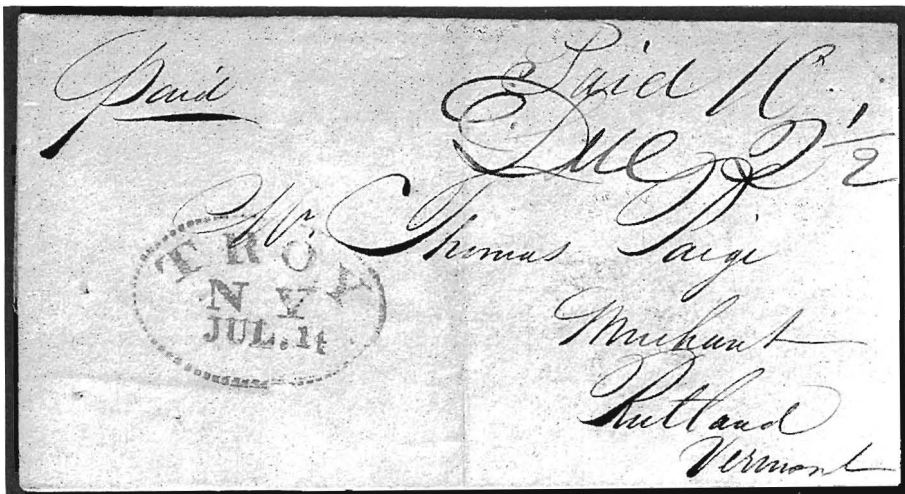 Paid
Paid 10
Due 2 1/2
Mr. Thomas Paige
Merchant
Rutland
Vermont
TROY
NY
JUL. 11